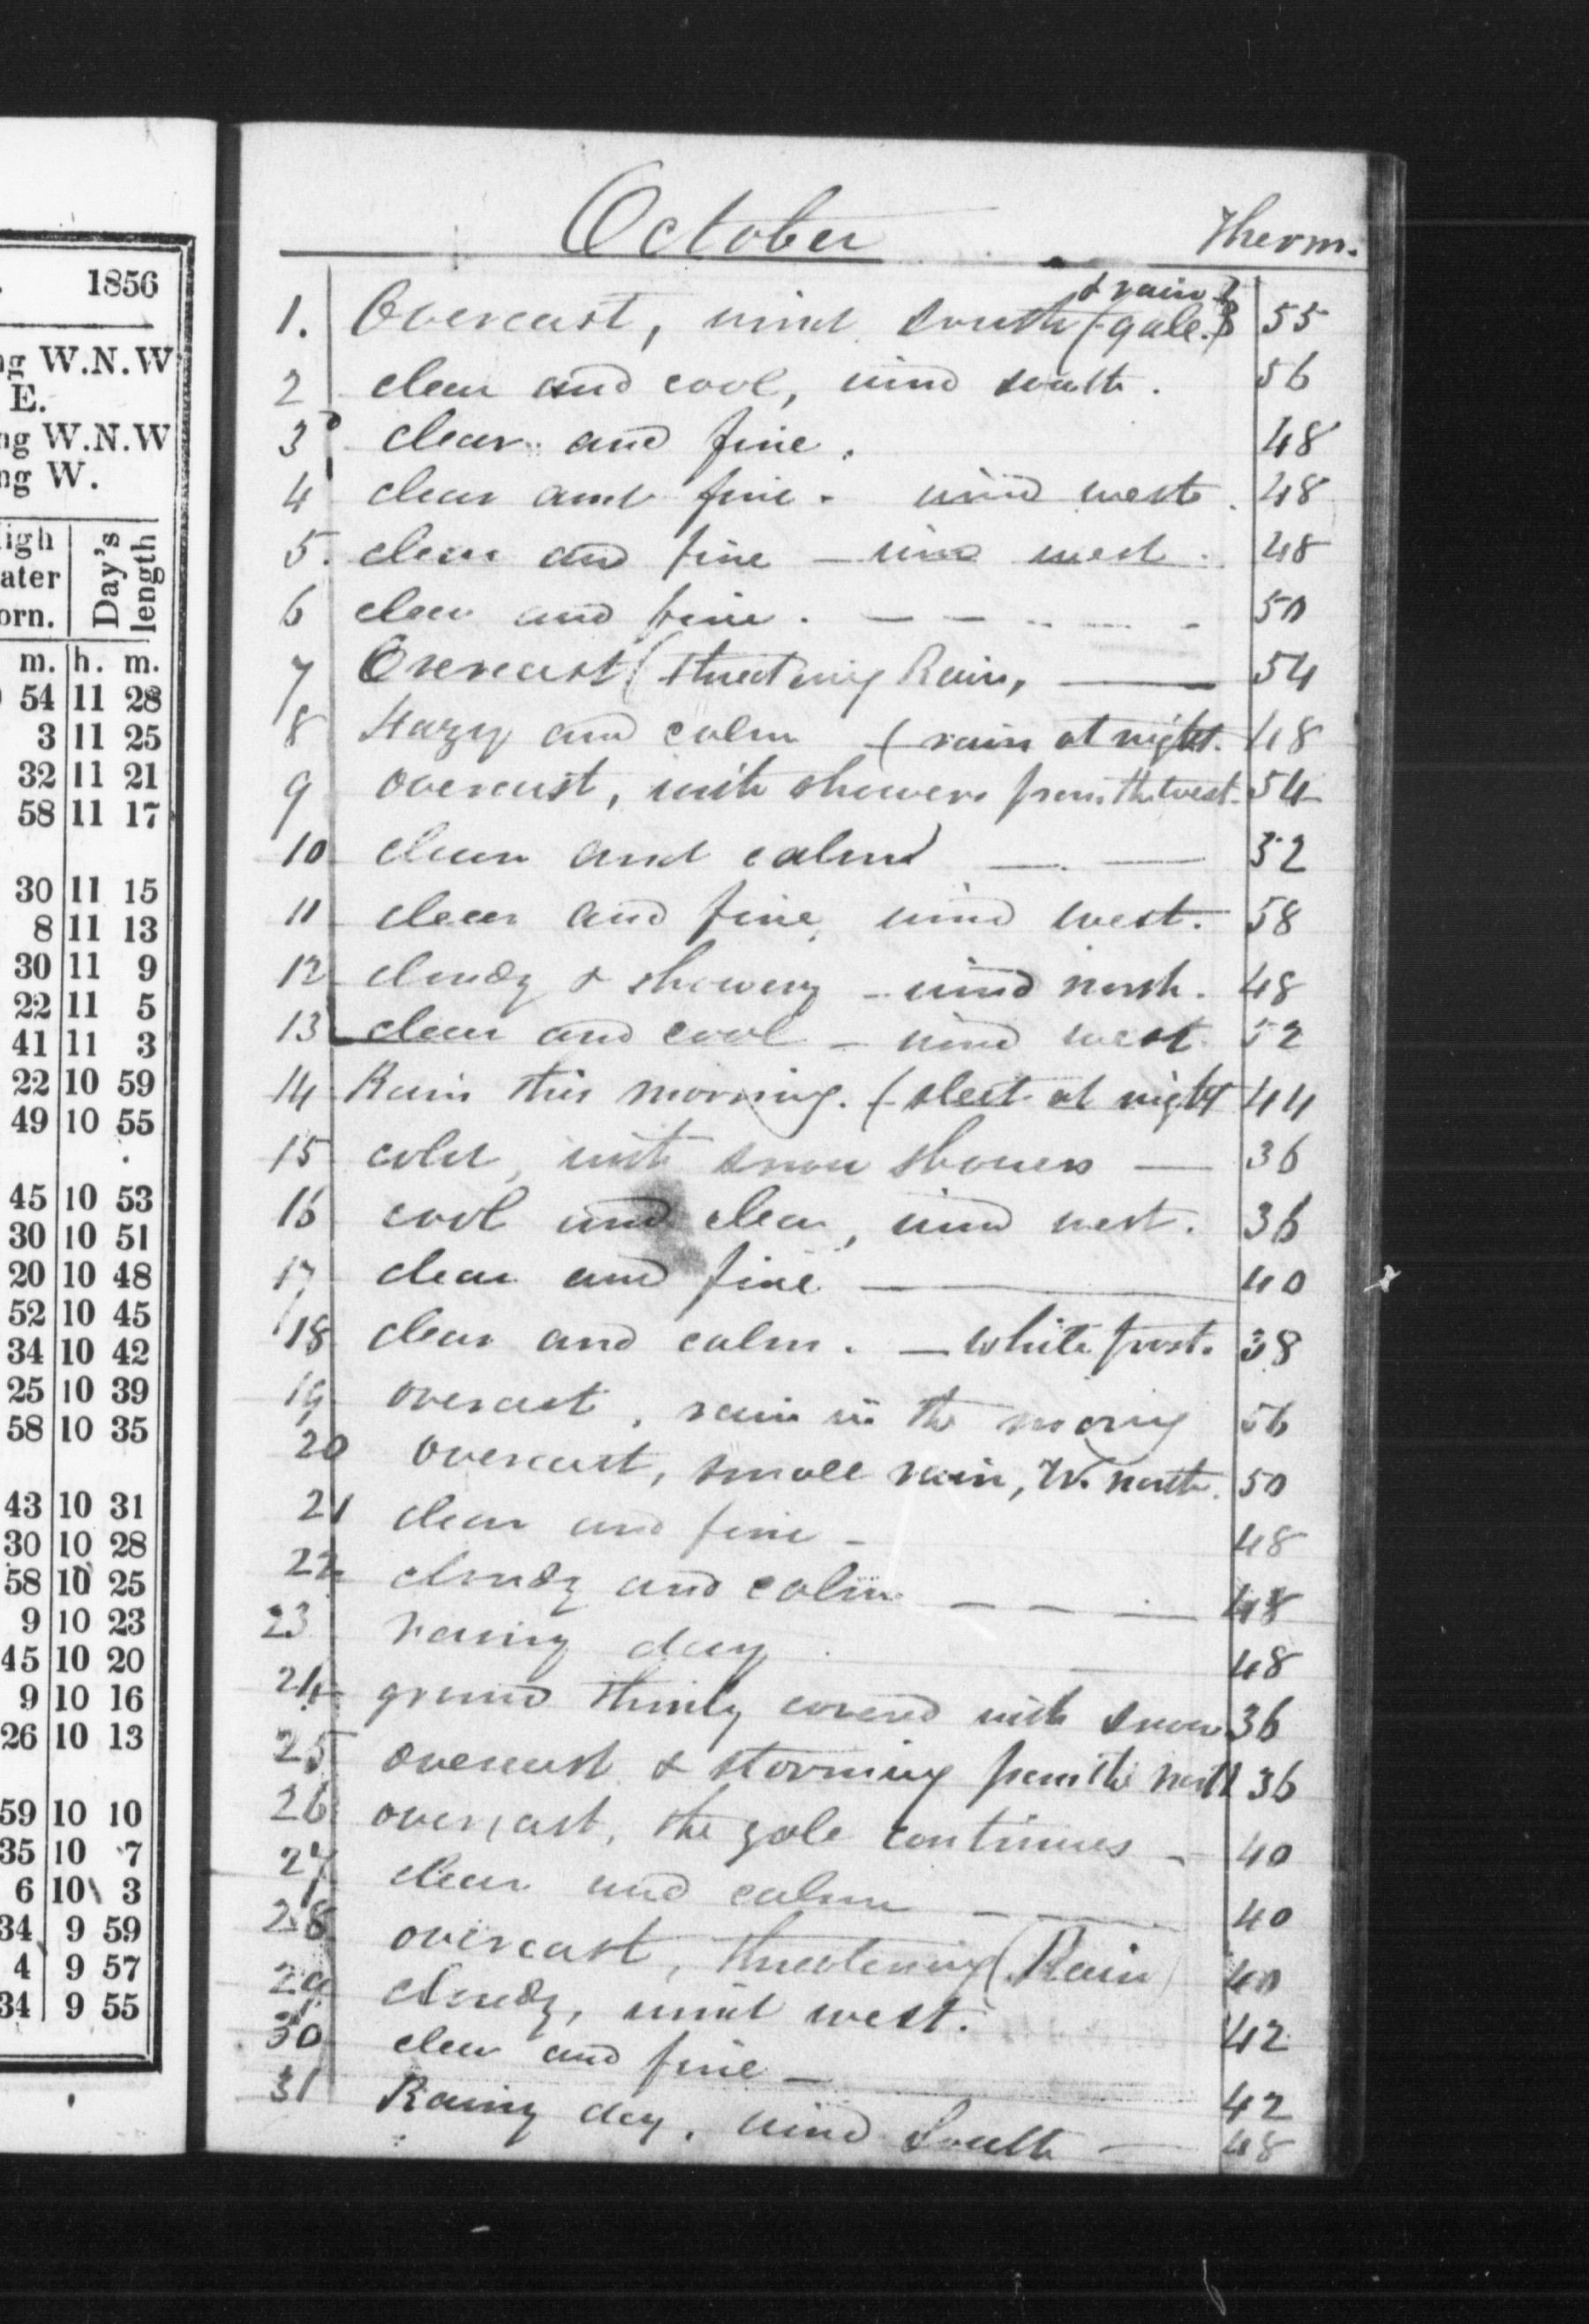 1856
ng W.N.W
E.
ng W.N.W
ng W.
igh
ater
orn.
Day's
length
m. h. m.
54 11 28
3 11 25
32 11 21
58 11 17
30 11 15
8 11 13
30 11 9
22 11 5
41 11 3
22 10 59
49 10 55
45 10 53
30 10 51
20 10 48
52 10 45
34 10 42
25 10 39
58 10 35
43 10 31
30 10 28
58 10 25
9 10 23
45 10 20
9 10 16
26 10 13
59 10 10
35 10 7
6 10 3
34 9 59
4 9 57
34 9 55
October Therm.
& rain
1. Overcast, wind south (gale.) 55
2 clear and cool, wind south. 56
3 clear and fine. 48
4 clear and fine. wind west. 48
5. clear and fine – wind west. 48
6 clear and fine. – – – – – 50
7 Overcast (threatening Rain, — 54
8 Hazy and calm (rain at night. 48
9 overcast, with showers from the west. 54
10 clear and calm — — 32
11 clear and fine, wind west. 58
12 cloudy & showery – wind north. 48
13 clear and cool – wind west. 52
14 Rain this morning. (sleet at night 44
15 cold, with snow showers — 36
16 cool and clear, wind west. 36
17 clear and fine — 40
18 clear and calm. – white frost. 38
19 overcast, rain in the morning 56
20 overcast, small rain, W. north. 50
21 clear and fine – 48
22 cloudy and calm – – — 48
23 rainy day 48
24 ground thinly covered with snow 36
25 overcast & storming from the north 36
26 overcast, the gale continues – 40
27 clear and calm – — 40
28 overcast, threatening (Rain) 40
29 cloudy, wind west. 42
30 clear and fine – 42
31 Rainy day, wind South — 48